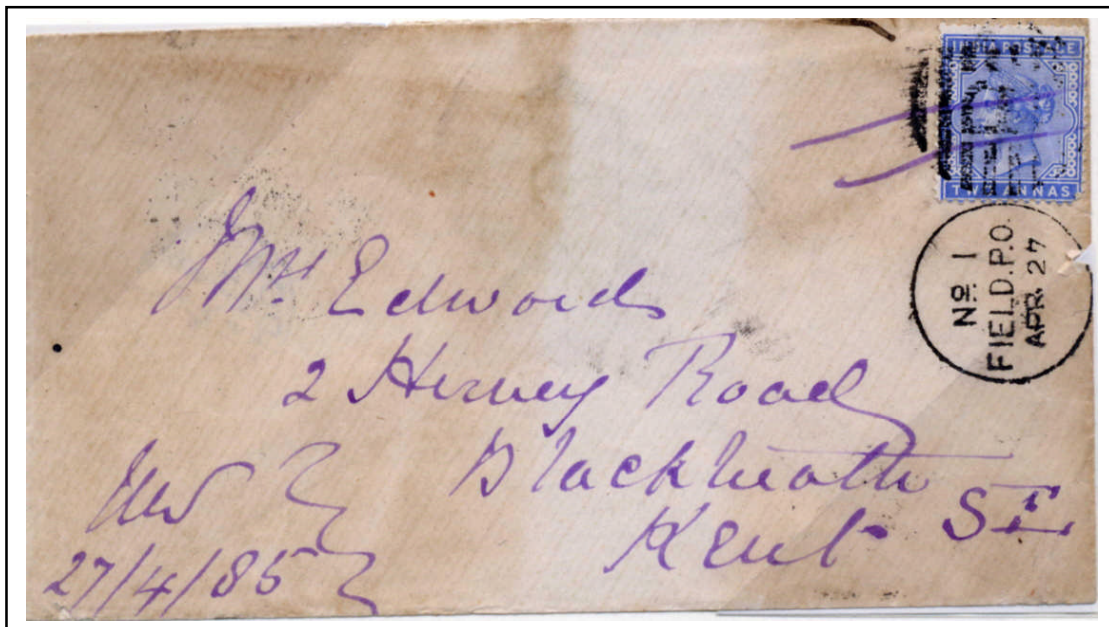 INDIA POSTAGE
TWO ANNAS
No 1
FIELD.P.O.
APR. 27
Mrs Edwords
2 Hervey Road
Blackheath
Kent SE
27/4/85